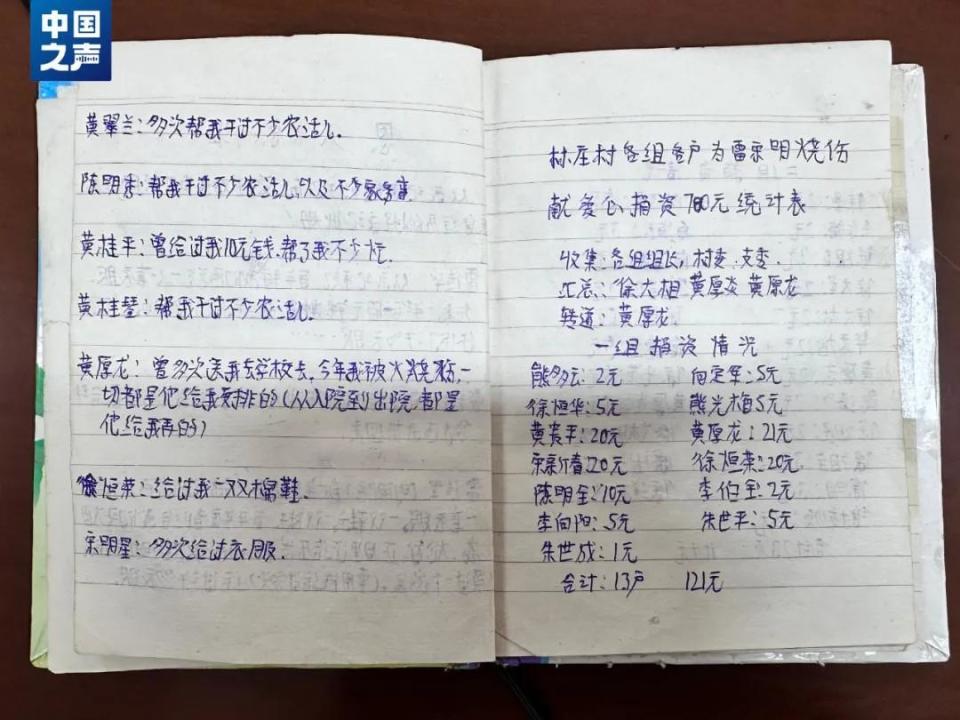 中国
之声
黄翠兰：多次帮我干过不少农活儿.
陈明荣：帮我干过不少农活儿以及不少家务事
黄桂平：曾给过我10元钱.帮了我不少忙.
黄桂琴：帮我干过不少农活儿.
黄厚龙：曾多次送我去学校去.今年我被火烧伤，一
切都是他给我安排的(从入院到出院，都是
他给我弄的)
徐恒荣：给过我一双棉鞋.
宋明星：多次给过衣服.
林庄村各组各户为雷宗明烧伤
献爱心捐资700元统计表
收集：各组组长，村委，支委.
汇总：徐大相 黄厚炎 黄厚龙
转递：黄厚龙
一组捐资情况
熊多云：2元 向定军：5元
徐恒华：5元 熊光梅5元
黄贵平：20元 黄厚龙：21元
宋新春：20元 徐恒荣：20元
陈明全：10元 李伯全：2元
李向阳：5元 朱世平：5元
朱世成：1元
合计：13户 121元